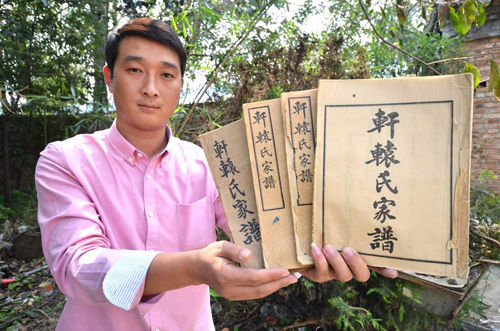 軒轅氏家譜
軒轅氏家譜
軒轅氏家譜
軒轅氏家譜